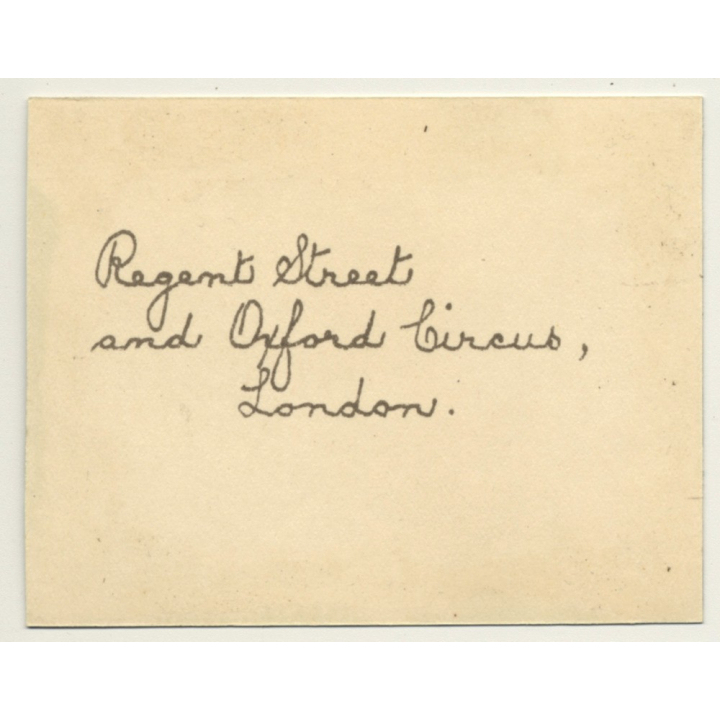 Regent Street
and Oxford Circus,
London.